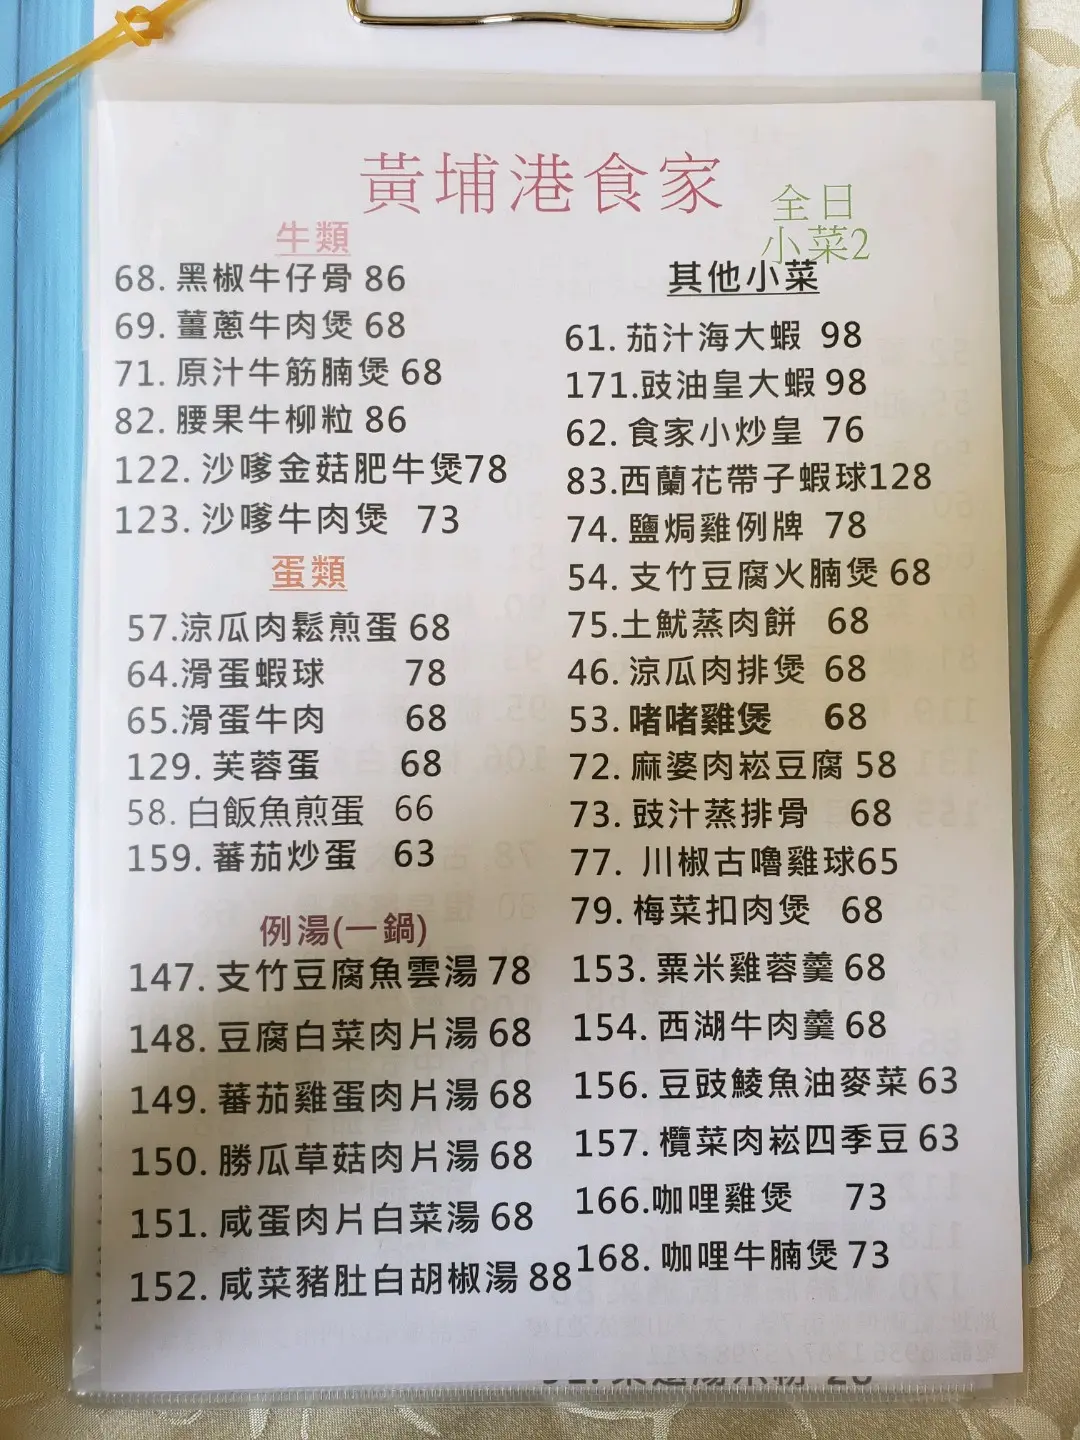 黃埔港食家
全日
小菜2
牛類
68. 黑椒牛仔骨 86
69. 薑蔥牛肉煲 68
71. 原汁牛筋腩煲 68
82. 腰果牛柳粒 86
122. 沙嗲金菇肥牛煲78
123. 沙嗲牛肉煲 73
蛋類
57.涼瓜肉鬆煎蛋 68
64.滑蛋蝦球 78
65.滑蛋牛肉 68
129. 芙蓉蛋 68
58. 白飯魚煎蛋 66
159. 蕃茄炒蛋 63
例湯(一鍋)
147. 支竹豆腐魚雲湯 78
148. 豆腐白菜肉片湯 68
149. 蕃茄雞蛋肉片湯 68
150. 勝瓜草菇肉片湯 68
151. 咸蛋肉片白菜湯 68
152. 咸菜豬肚白胡椒湯 88
其他小菜
61. 茄汁海大蝦 98
171.豉油皇大蝦 98
62. 食家小炒皇 76
83.西蘭花帶子蝦球128
74. 鹽焗雞例牌 78
54. 支竹豆腐火腩煲 68
75.土魷蒸肉餅 68
46. 涼瓜肉排煲 68
53. 啫啫雞煲 68
72. 麻婆肉崧豆腐 58
73. 豉汁蒸排骨 68
77. 川椒古嚕雞球65
79. 梅菜扣肉煲 68
153. 粟米雞蓉羹 68
154. 西湖牛肉羹 68
156. 豆豉鯪魚油麥菜 63
157. 欖菜肉崧四季豆 63
166.咖哩雞煲 73
168. 咖哩牛腩煲 73